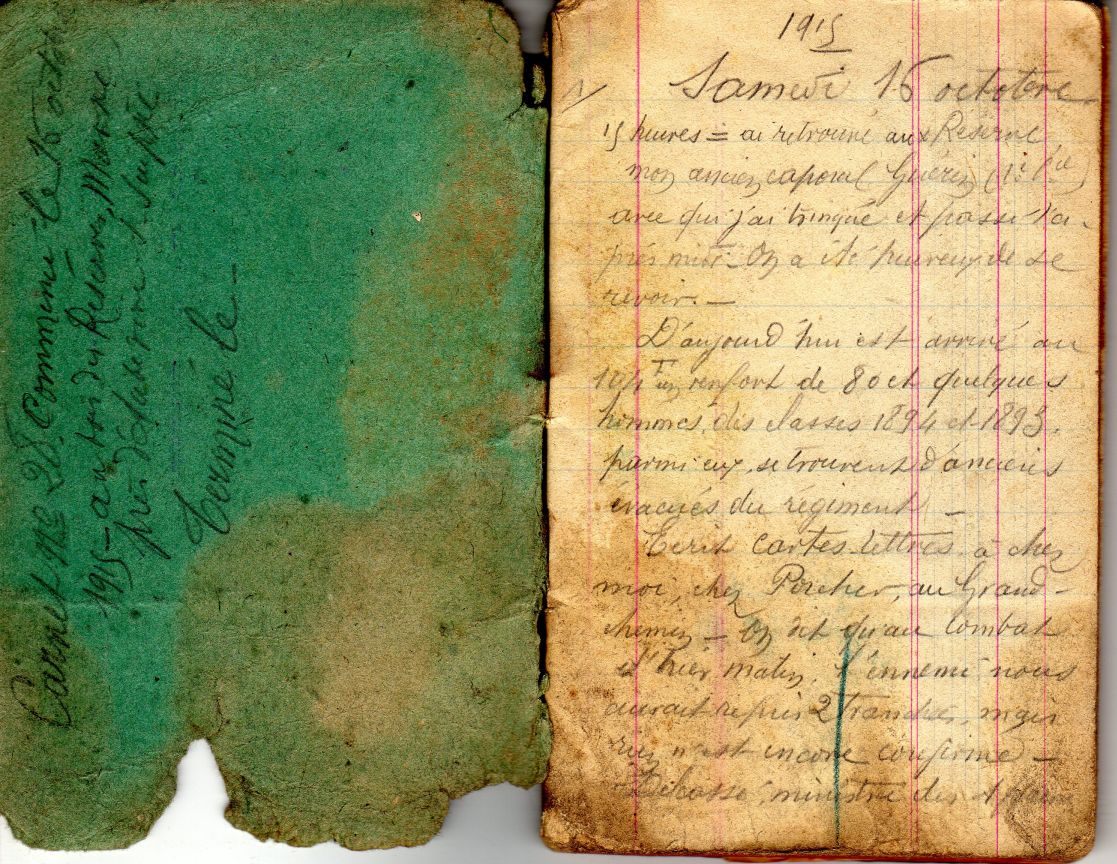 Carnet Nº 28. Commencé le 16 octobre
1915 – au bois du Réservoir, Marne
près
Terminé le –
1915
1/
Samedi 16 octobre
15 heures = ai retrouvé aux Réserve
mon ancien caporal Guérin (1è Cie)
avec qui j'ai trinqué et passé l'a-
près midi – On a été heureux de se
revoir –
D'aujourd'hui est arrivé au
en renfort de 8 oct quelques
hommes des classes 1894 et 1893,
parmi eux, se trouvent d'anciens
évacués du régiment –
Ecrit cartes-lettres à chez
moi, chez Porcher, au Grand-
chemin – On dit qu'au combat
d'hier matin, l'ennemi nous
aurait repris 2 tranchées, mais
rien n'est encore confirmé –
Délcassé, ministre des Affaires